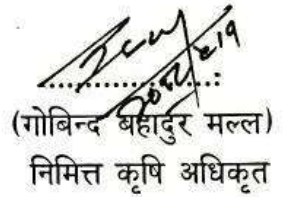 (गोबिन्द बहादुर मल्ल)
निमित्त कृषि अधिकृत